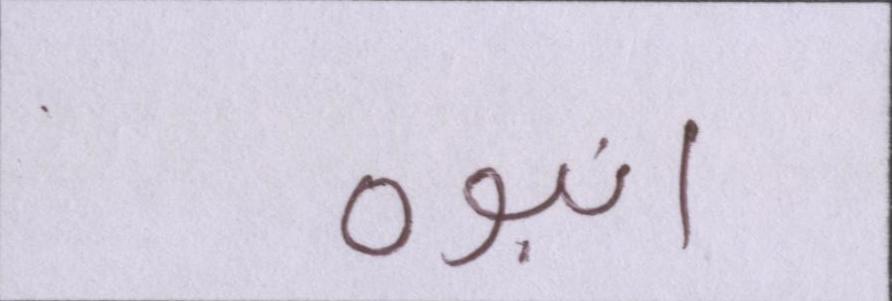 انبوه